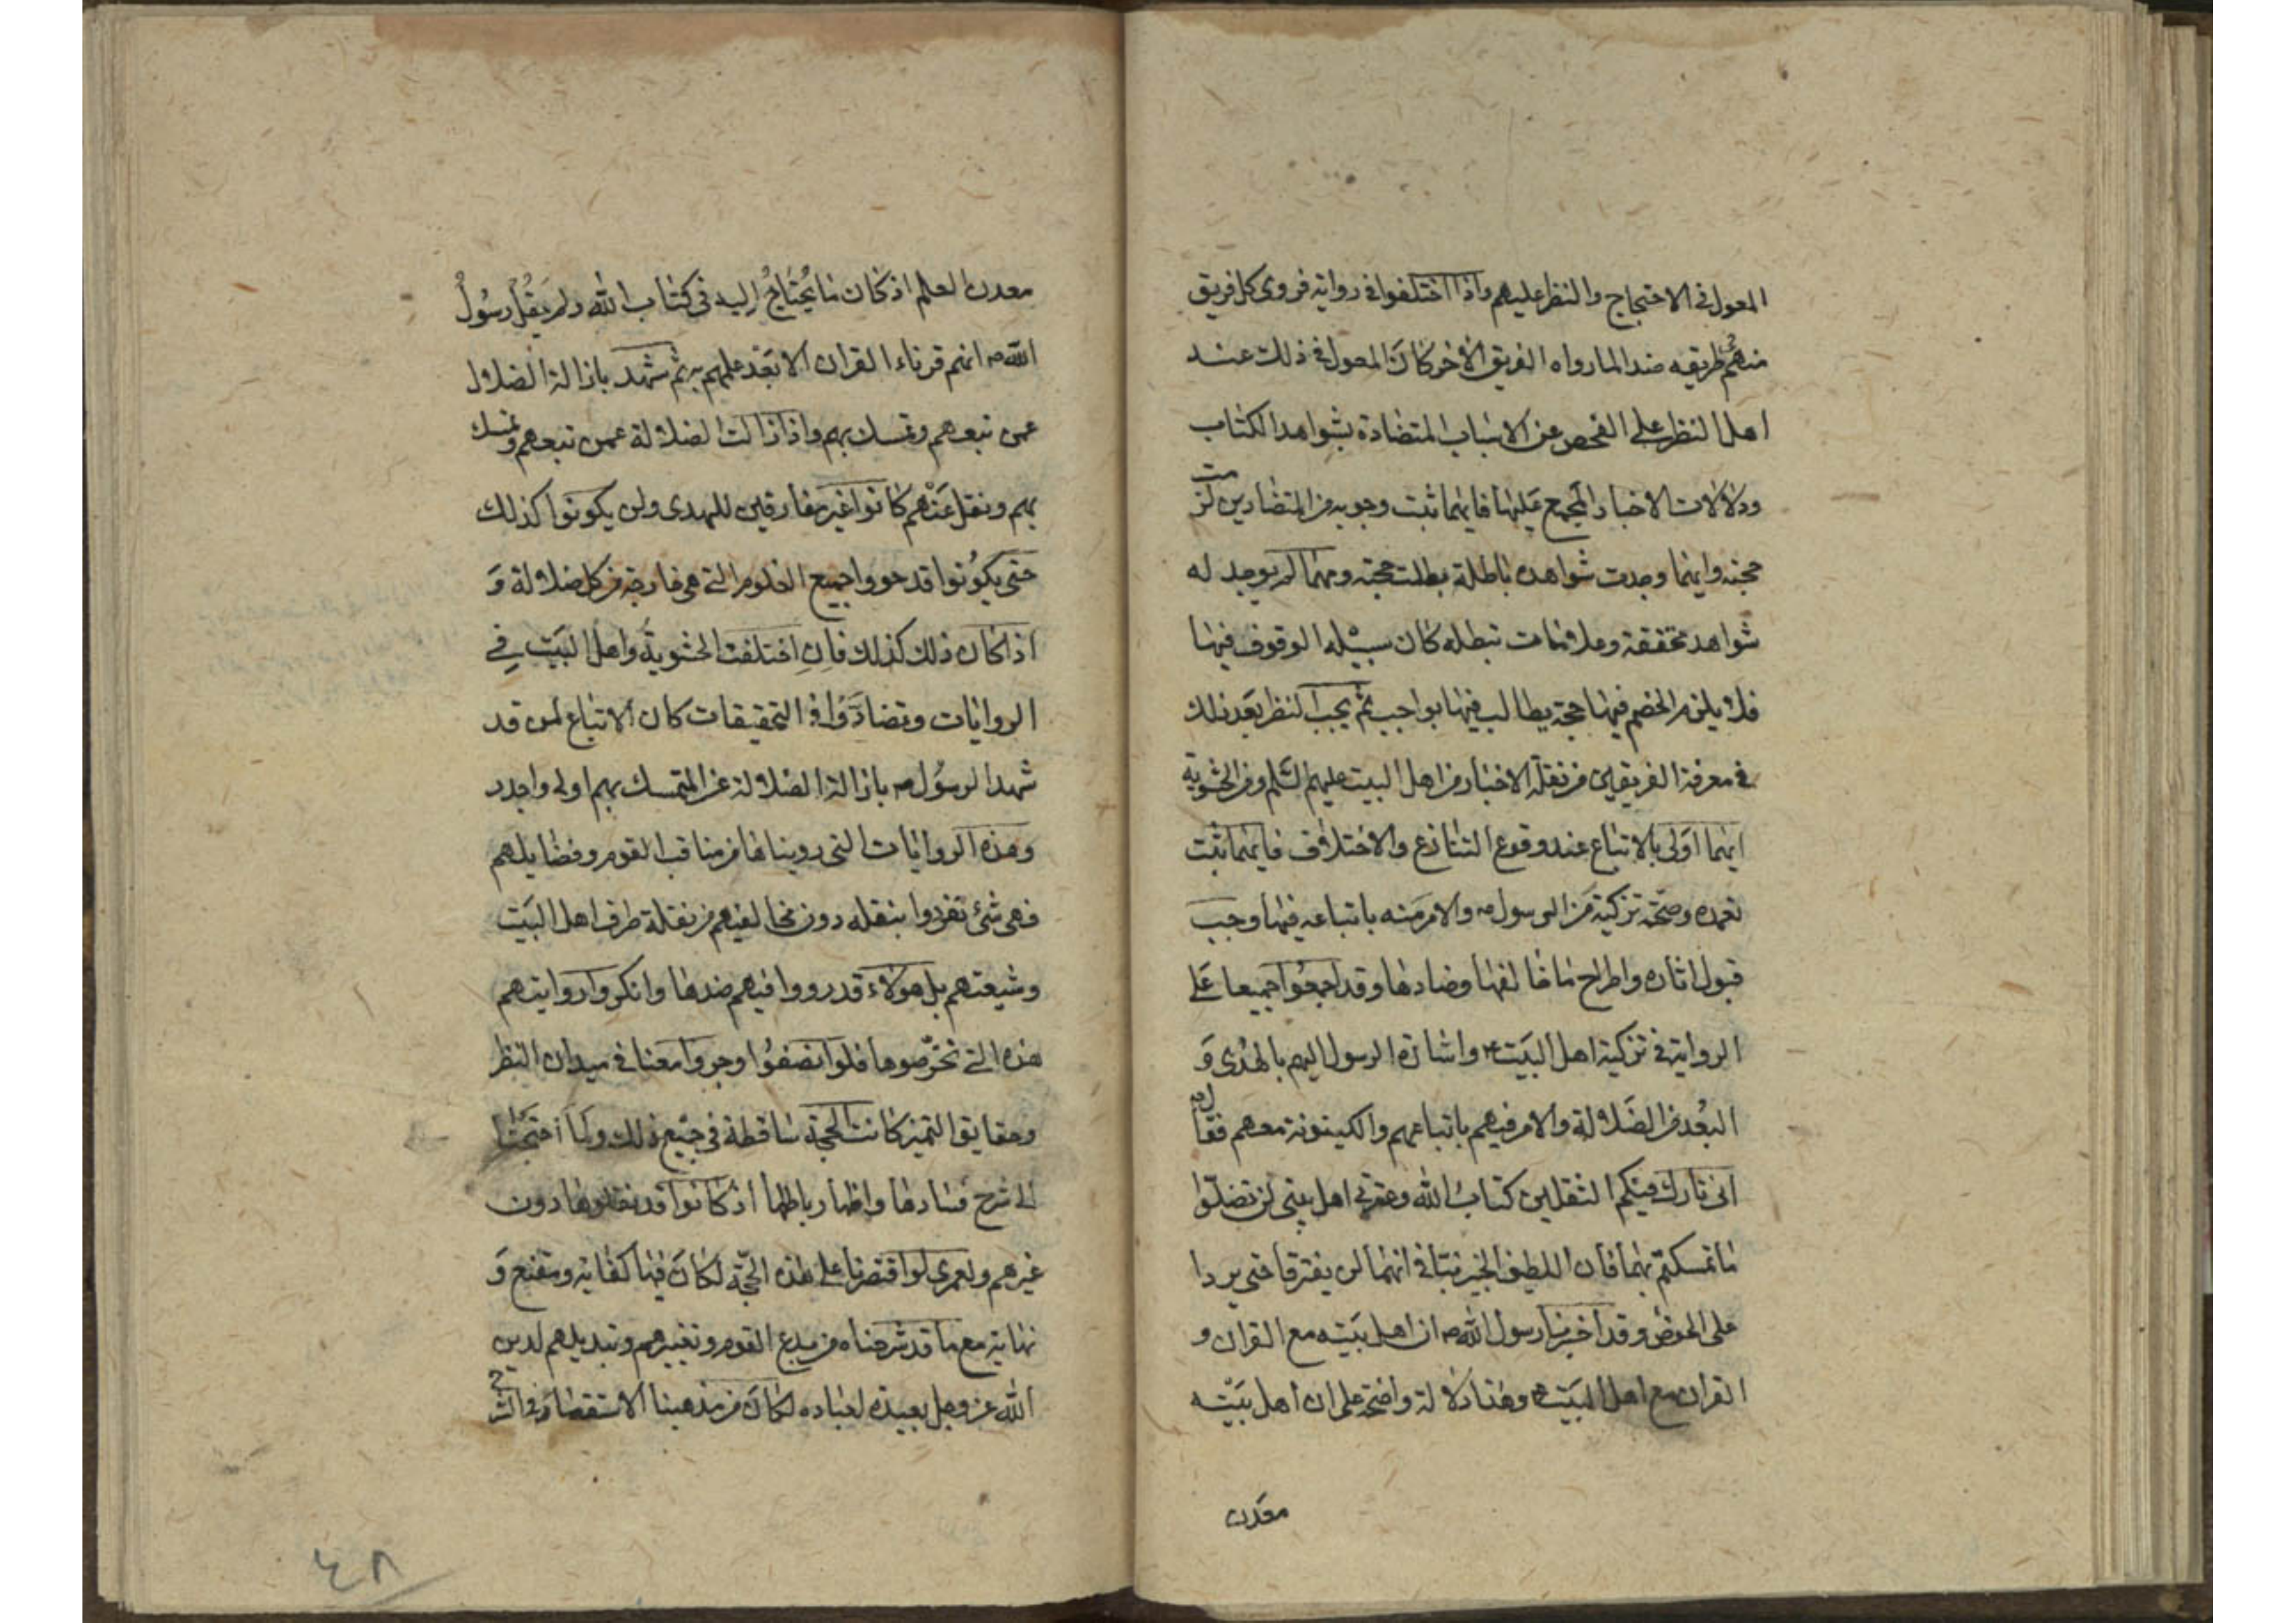 المعول في الاحتجاج والنظر عليهم واذا اختلفوا في رواية فروى كل فريق
منهم في طريقه ضدا لما رواه الفريق الاخر كان المعول في ذلك عند
اهل النظر على الفحص عن الاسباب المتضادة بشواهد الكتاب
ودلالات الاخبار المجمع عليها فايهما ثبت وجوبه من المتضادين لزمت
حجته وايهما وجدت شواهده باطلة بطلت حجته ومهما لم يوجد له
شواهد تحققه وعلامات تبطله كان سبيله الوقوف فيها
فلا يلزم الخصم فيها حجة يطالب فيها بواجب ثم يجب النظر بعد ذلك
في معرفة الفريقين من نقلة الاخبار من اهل البيت عليهم السلم ومن الحشوية
ايهما اولى بالاتباع عند وقوع التنازع والاختلاف فايهما ثبت
تعمده وصحة تزكية من الرسول ص والامر منه باتباعه فيها وجب
قبول اثاره واطراح ما خالفها وضادها وقد اجمعوا جميعا على
الرواية في تزكية اهل البيت ع واشارة الرسول اليهم بالهدى و
البعد من الضلالة والامر فيهم باتباعهم والكينونة معهم فقال ص
انى تارك فيكم الثقلين كتاب الله وعترتي اهل بيتي لن تضلوا
ما تمسكتم بهما فان اللطيف الخبير نبأني انهما لن يفترقا حتى يردا
على الحوض وقد اخبرنا رسول الله ص ان اهل بيته مع القران و
القران مع اهل البيت ع وهذا دلالة واضحة على ان اهل بيته
معدن
معدن العلم اذ كان ما يُحتاجُ اليه في كتاب الله ولم يقُل رسُولُ
الله ص انهم قرناء القران الا بَعْد علمهم به ثم شهد بازالة الضلال
عمن تبعهم وتمسك بهم واذا زالت الضلالة عمن تبعهم وتمسك
بهم ونقل عَنْهم كانوا غير مفارقين للهدى ولن يكونوا كذلك
حتى يكونوا قد حووا جميع العلوم التى هى خارجة من كل ضلالة و
اذا كان ذلك كذلك فان اختلفت الحشوية واهل البيت في
الروايات وتضادوا في التحقيقات كان الاتباع لمن قد
شهد الرسول ص بازالة الضلالة عن المتمسك بهم اولى واجدر
وهذه الروايات التى رويناها من مناقب القوم وفضايلهم
فهى شئ تفردوا بنقله دون مخالفيهم من نقلة طرف اهل البيت
وشيعتهم بل هولاء قد رووا فيهم ضدها وانكروا روايتهم
هذه التى تخرّصوها فلو انصفوا وجروا معنا في ميدان النظر
وحقايق التميز كانت الحجة ساقطة في جميع ذلك ولما احتجنا
الى شرح فسادها واظهار باطلها اذ كانوا قد نقلوها دون
غيرهم ولعمرى لو اقتصرنا على هذه الحجّة لكان فيها كفاية ومقنع و
نهاية مع ما قد شرحناه من بدع القوم وتغييرهم وتبديلهم لدين
الله عز وجل بعبيده لعباده لكان من مذهبنا الاستقصاء في الشرح
٤٨